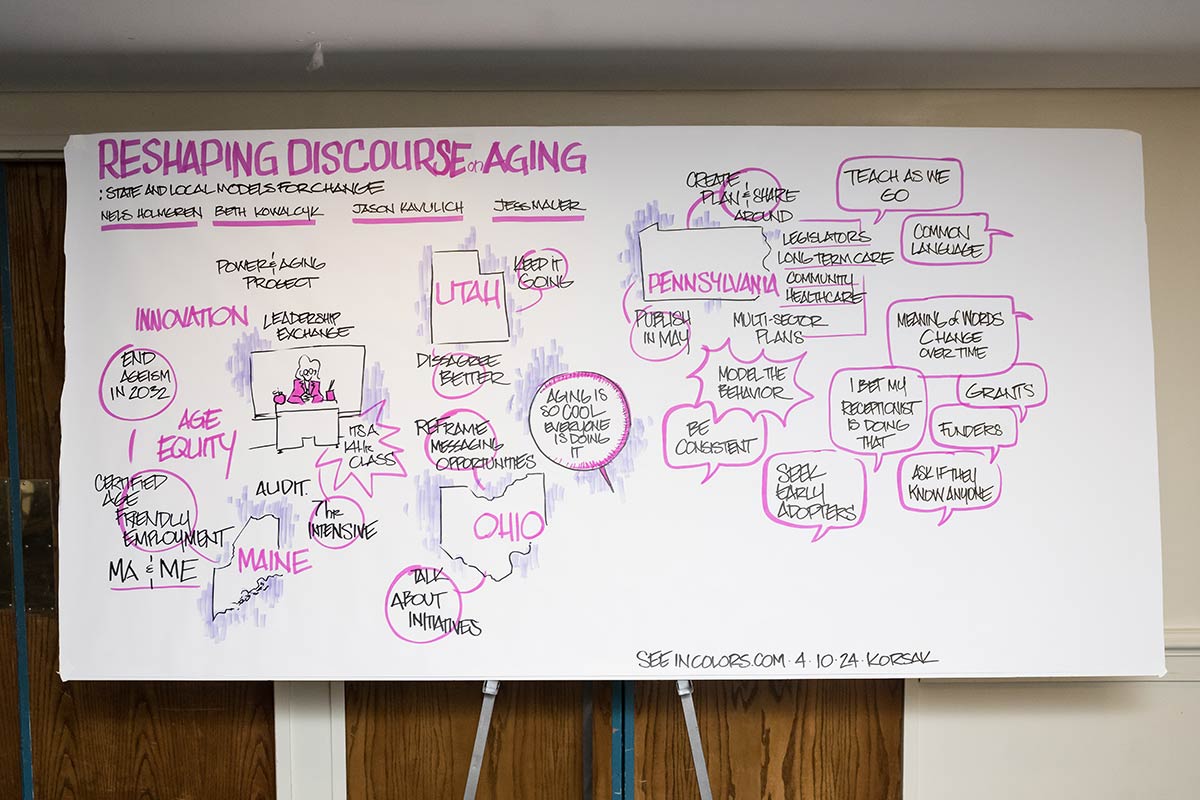 RESHAPING DISCOURSE on AGING
: STATE AND LOCAL MODELS FOR CHANGE
NELS HOLMGREN BETH KOWALCYK JASON KAVULICH JESS MAUER
POWER & AGING
PROJECT
INNOVATION
LEADERSHIP
EXCHANGE
END
AGEISM
IN 2032
AGE
EQUITY
ITS A
14Hr
CLASS
CERTIFIED
AGE
FRIENDLY
EMPLOYMENT
MA & ME
AUDIT.
7hr
INTENSIVE
MAINE
UTAH
KEEP IT
GOING
DISSAGREE
BETTER
REFRAME
MESSAGING
OPPORTUNITIES
AGING IS
SO COOL
EVERYONE
IS DOING
IT
OHIO
TALK
ABOUT
INITIATIVES
CREATE
PLAN & SHARE
AROUND
PENNSYLVANIA
LEGISLATORS
LONG TERM CARE
COMMUNITY
HEALTHCARE
PUBLISH
IN MAY
MULTI-SECTOR
PLANS
TEACH AS WE
GO
COMMON
LANGUAGE
MEANING of WORDS
CHANGE
OVER TIME
MODEL THE
BEHAVIOR
BE
CONSISTENT
I BET MY
RECEPTIONIST
IS DOING
THAT
GRANTS
FUNDERS
ASK IF THEY
KNOW ANYONE
SEEK
EARLY
ADOPTERS
SEEINCOLORS.COM · 4 · 10 · 24 · KORSAK